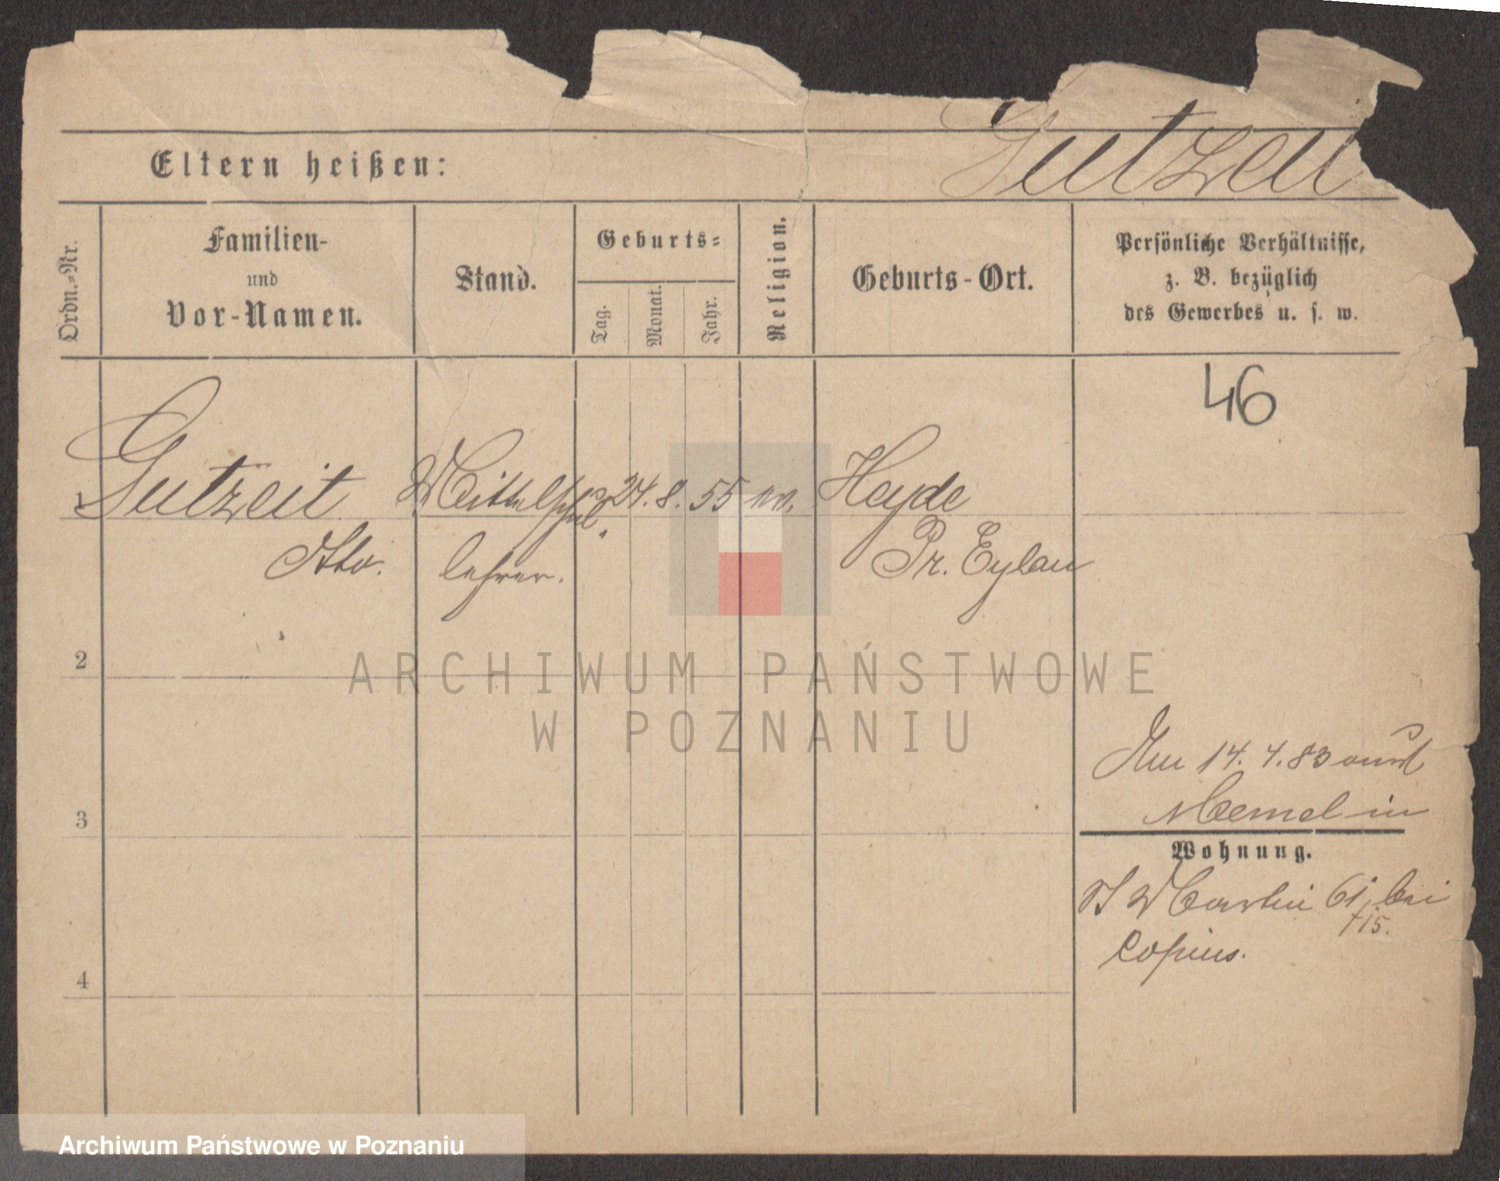 Gutzeit
Eltern heißen:
Ordn.-Nr.
Familien-
und
Vor-Namen.
Stand.
Geburts-
Tag.
Monat.
Jahr.
Religion.
Geburts-Ort.
Persönliche Verhältnisse,
z. B. bezüglich
des Gewerbes u. s. w.
46
1 Gutzeit Mittelsch 24. 8. 55 Heyde
Otto. lehrer. Pr. Eylau
2
3
4
14. 4. 83
Memel
Wohnung.
St Martin 61, bei
15.
ARCHIWUM PAŃSTWOWE
W POZNANIU
Archiwum Państwowe w Poznaniu